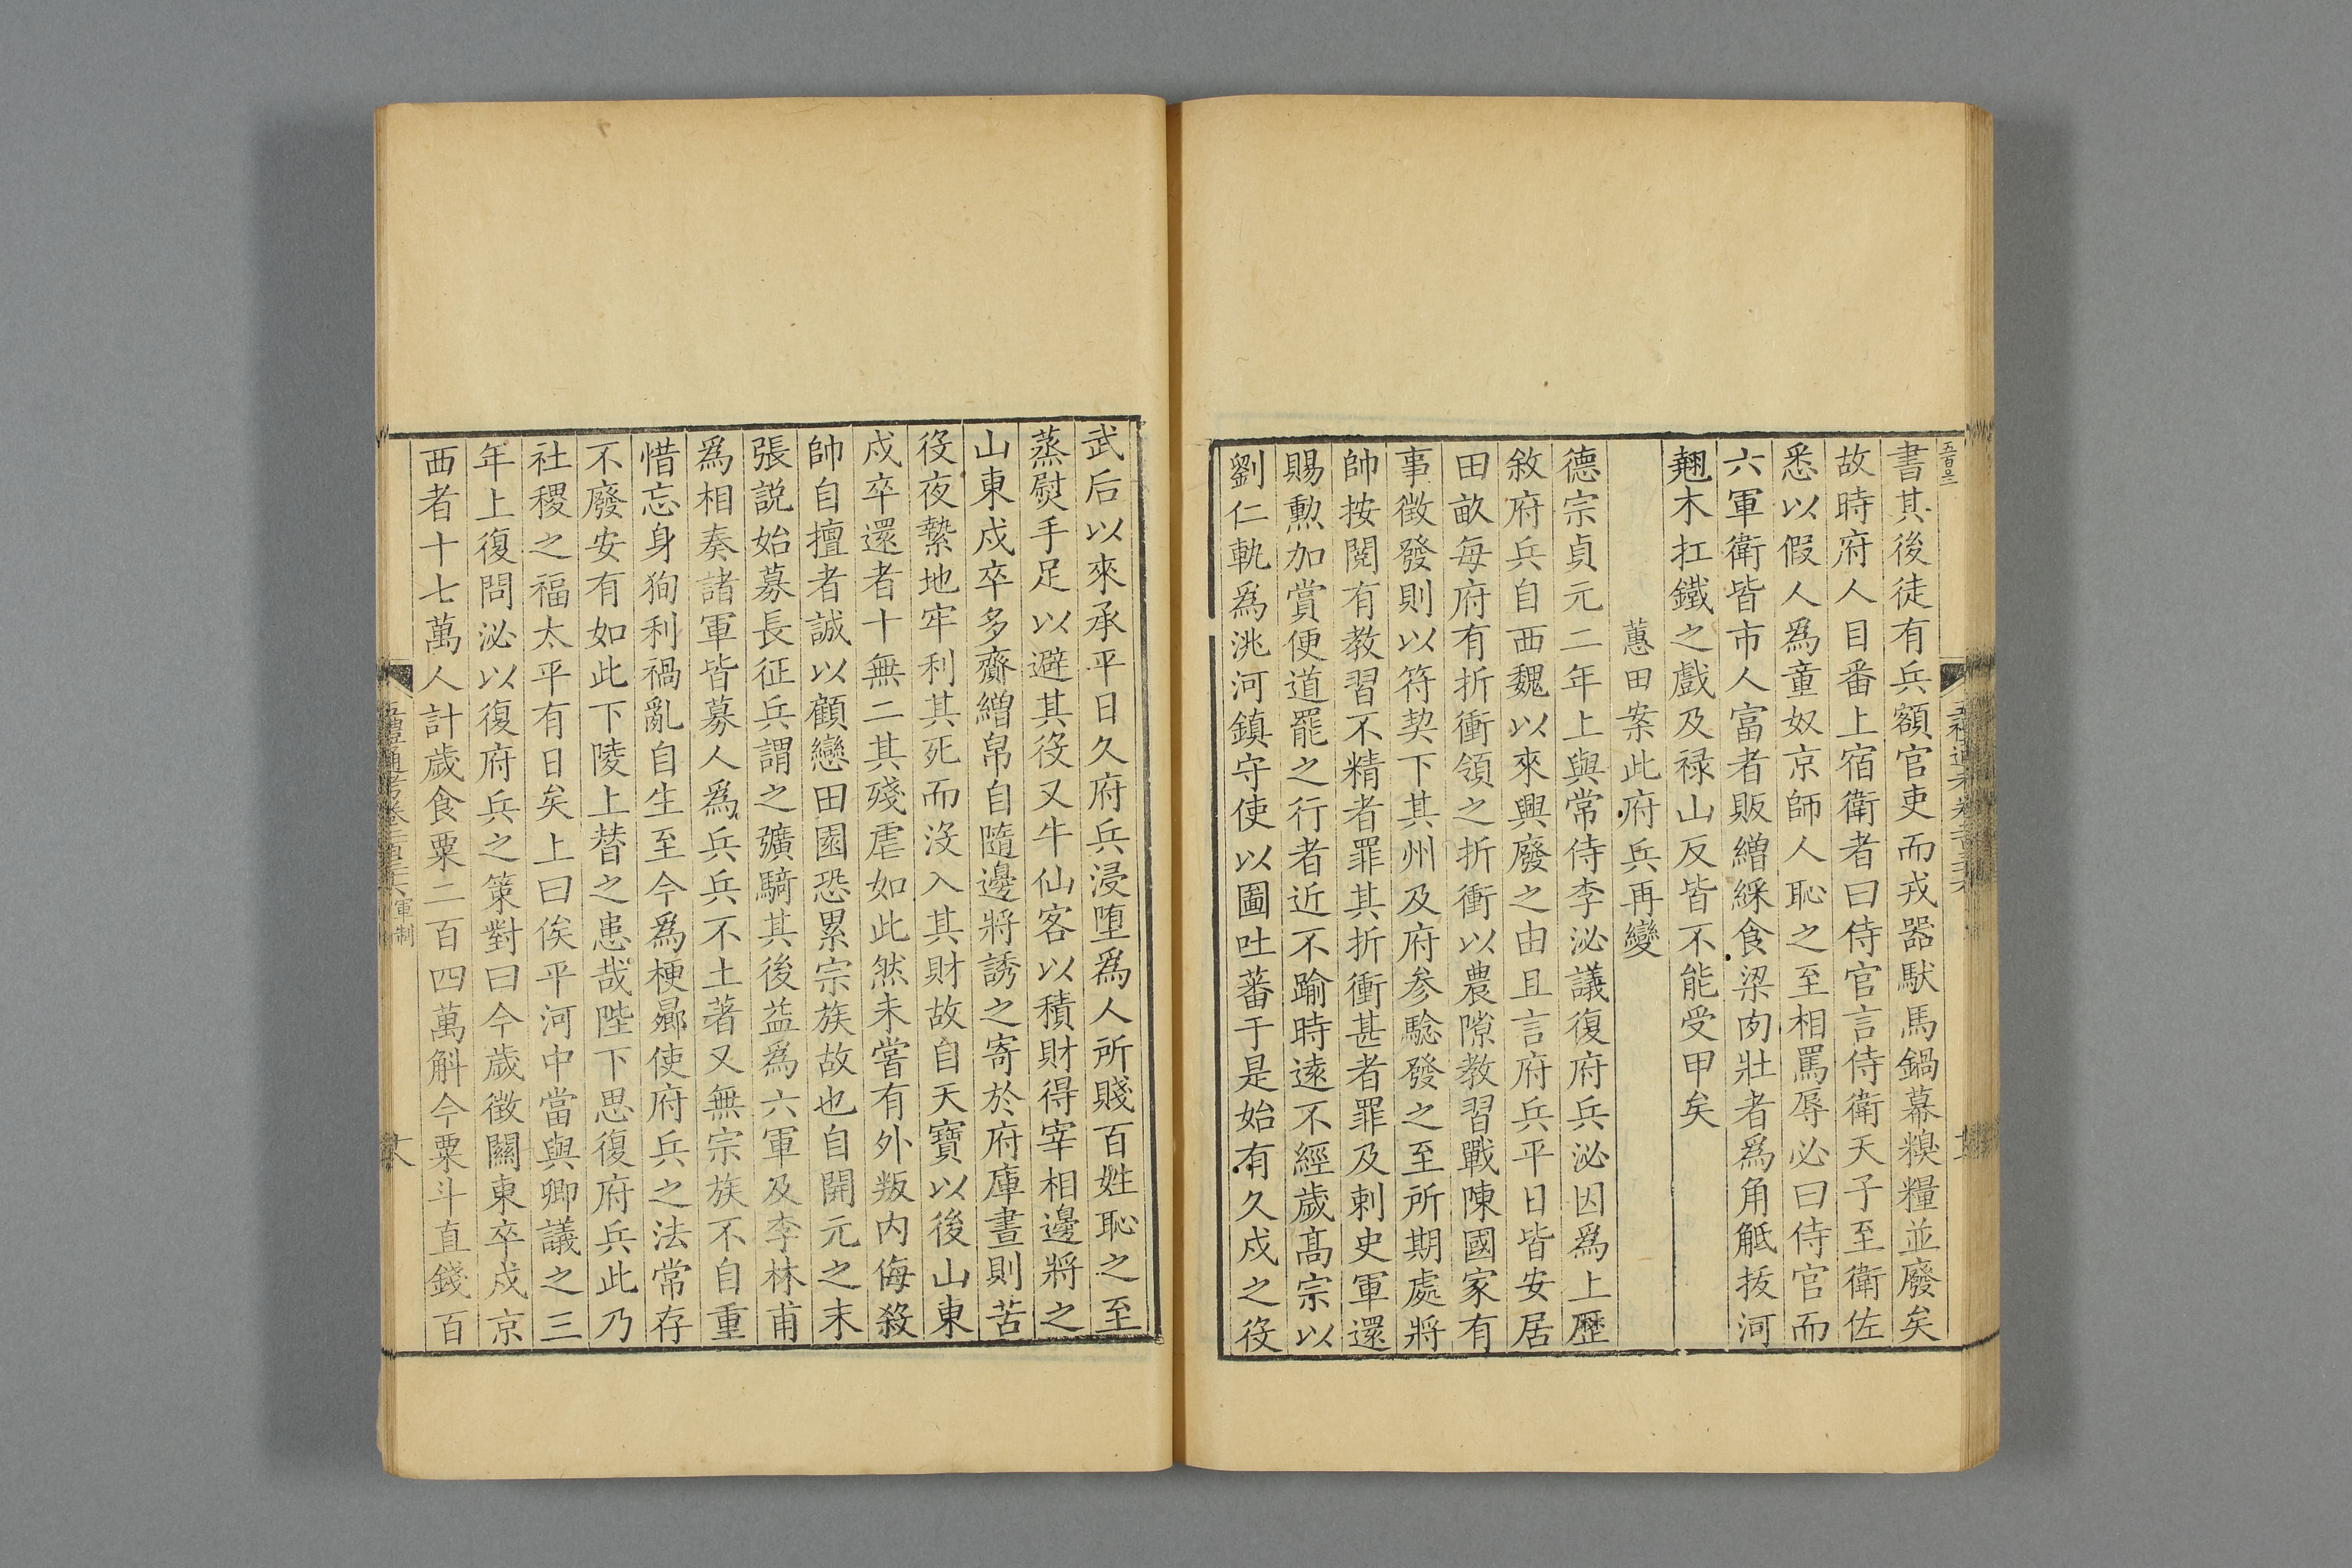 書其後徒有兵額官吏而戎器馱馬鍋幕糗糧並廢矣
故時府人目番上宿衛者曰侍官言侍衛天子至衛佐
悉以假人爲童奴京師人恥之至相罵辱必曰侍官而
六軍衛皆市人富者販繒綵食梁肉壯者爲角觝拔河
翹木扛鐵之戲及禄山反皆不能受甲矣
蕙田案此府兵再變
德宗貞元二年上與常侍李泌議復府兵泌因爲上歷
敘府兵自西魏以來興廢之由且言府兵平日皆安居
田畝每府有折衝領之折衝以農隙教習戰陳國家有
事徵發則以符契下其州及府參驗發之至所期處將
帥按閱有教習不精者罪其折衝甚者罪及刺史軍還
賜勲加賞便道罷之行者近不踰時遠不經歲髙宗以
劉仁軌爲洮河鎮守使以圖吐蕃于是始有久戍之役
武后以來承平日久府兵浸墮爲人所賤百姓恥之至
蒸熨手足以避其役又牛仙客以積財得宰相邊將之
山東戍卒多齎繒帛自隨邊將誘之寄於府庫晝則苦
役夜縶地牢利其死而沒入其財故自天寶以後山東
戍卒還者十無二其殘虐如此然未嘗有外叛内侮殺
帥自擅者誠以顧戀田園恐累宗族故也自開元之末
張説始募長征兵謂之彍騎其後益爲六軍及李林甫
爲相奏諸軍皆募人爲兵兵不土著又無宗族不自重
惜忘身狥利禍亂自生至今爲梗曏使府兵之法常存
不廢安有如此下陵上替之患哉陛下思復府兵此乃
社稷之福太平有日矣上曰俟平河中當與卿議之三
年上復問泌以復府兵之策對曰今歲徵關東卒戍京
西者十七萬人計歲食粟二百四萬斛今粟斗直錢百